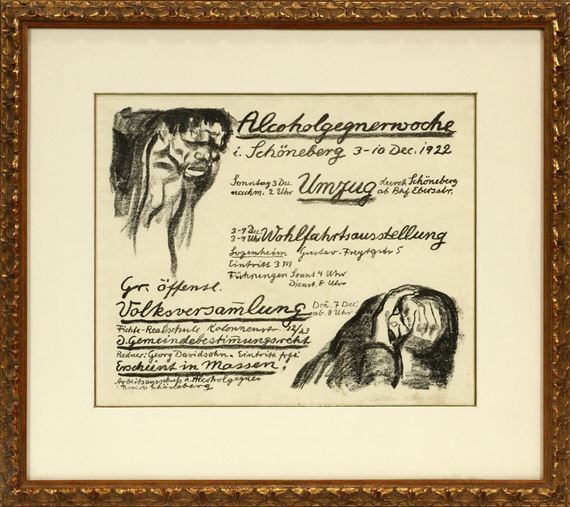 Alcoholgegnerwoche
i. Schöneberg 3-10 Dec. 1922
Sonntag 3 Dec. nachm. 2 Uhr Umzug durch Schöneberg ab Bhf. Ebersstr.
3-9 Dec.
3-9 Uhr Wohlfahrtsausstellung
Jugenheim Gustav-Freytagstr 5
Eintritt 3 M
Führungen Sonnt 4 Uhr
Dienst. 8 Uhr
Gr. öffentl.
Volksversam̄lung Don̄. 7 Dec. ab. 8 Uhr
Fichte-Realschule Kolonnenstr. 22/23
D. Gemeindebestim̄ungsrecht
Redner: Georg Davidsohn. Eintritt frei
Erscheint in Massen!
Arbeitsausschuß d. Alcoholgegner
Schöneberg